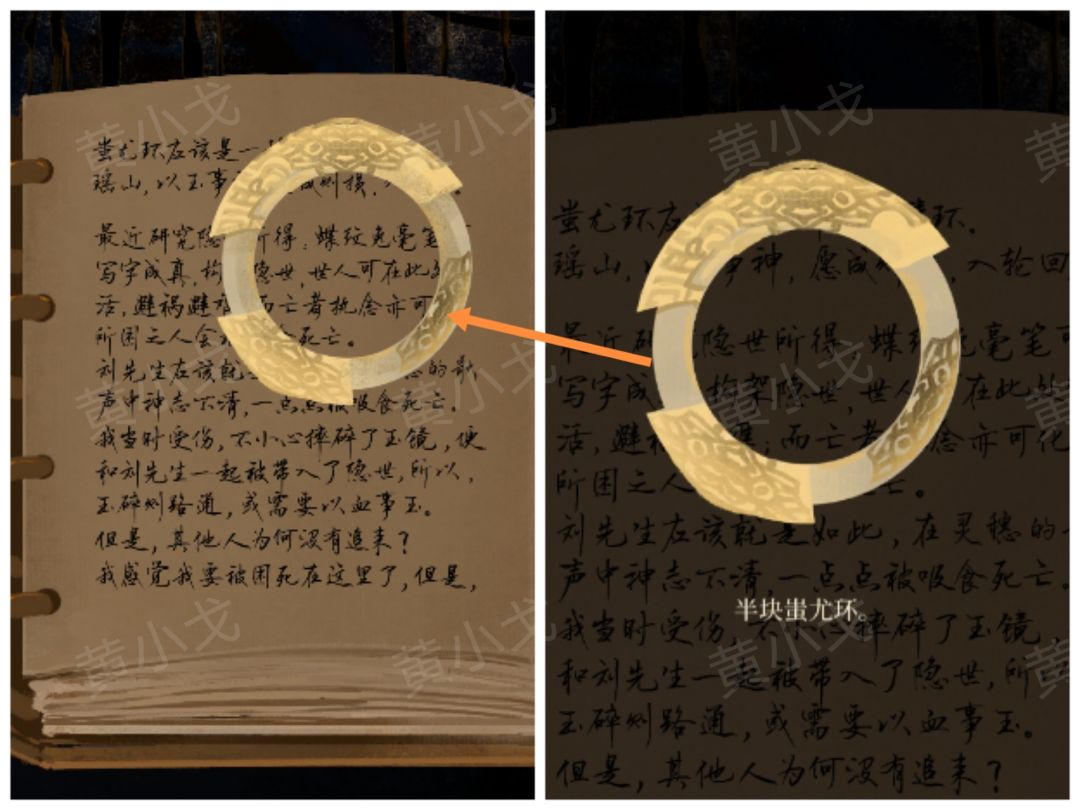 蚩尤环应该是一
瑶山,以玉事 则损,
最近研究隐 得:蝶纹兔毫笔
写字成真,构 隐世,世人可在此
活,避祸避 而亡者执念亦可
所困之人会 死亡。
刘先生应该就 的歌
声中神志不清,一点点被吸食死亡。
我当时受伤,不小心摔碎了玉镜,便
和刘先生一起被带入了隐世,所以,
玉碎则路通,或需要以血事玉。
但是,其他人为何没有追来?
我感觉我要被困死在这里了,但是,
蚩尤环应 环.
瑶山, 神,愿成 ,入轮回
最近研 隐世所得 蝶纹 毫笔可
写字成 构架隐世,世人 在此
活,避祸 ;而亡者 念亦可化
所困之人 亡。
刘先生应该就是如此,在灵穗的
声中神志不清,一点点被吸食死亡。
半块蚩尤环。
我当时受伤,不小心摔碎了玉镜,
和刘先生一起被带入了隐世,所
玉碎则路通,或需要以血事玉。
但是,其他人为何没有追来?
黄小戈
黄小戈
黄小戈
黄小戈
黄小戈
黄小戈
黄小戈
黄小戈
黄小戈
黄
黄
黄